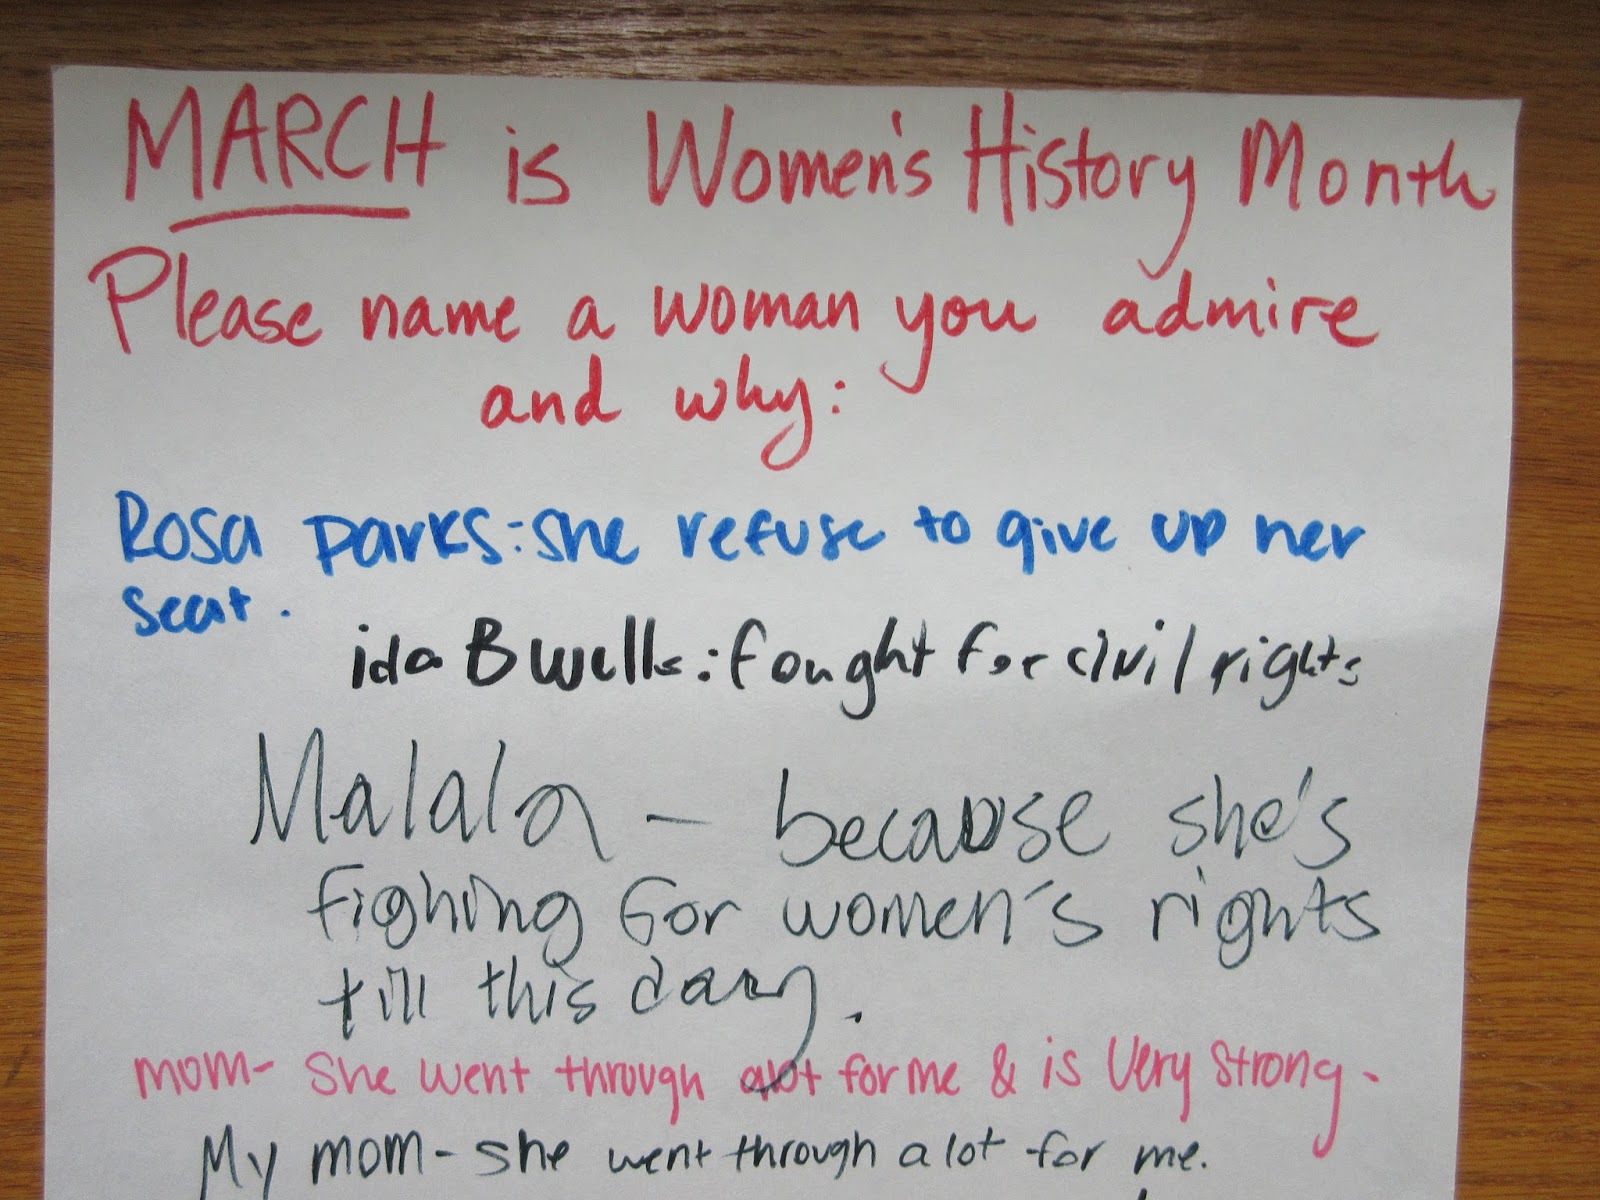 MARCH is Women's History Month
Please name a woman you admire
and why:
Rosa Parks: she refuse to give up her
seat.
ida B wells: fought for civil rights
Malala - because she's
fighting for women's rights
till this day.
mom- She went through alot for me & is very strong.
My mom - she went through a lot for me.